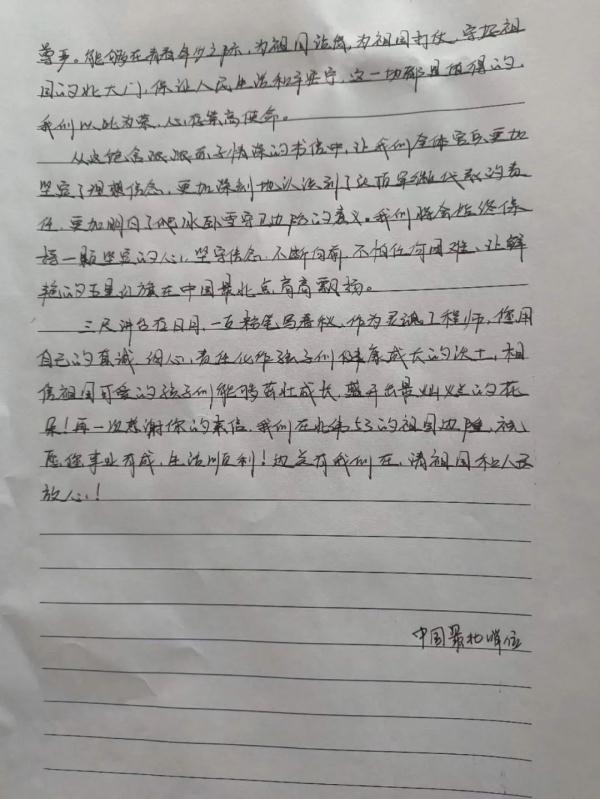 尊严。能够在青春年少之际，为祖国站岗，为祖国打仗，守护祖
国的北大门，保证人民生活和平安宁，这一切都是值得的，
我们以此为荣，心存崇高使命。
从这饱含浓浓赤子情深的书信中，让我们全体官兵更加
坚定了理想信念，更加深刻地认识到了这份军继代表的责
任，更加明白了爬冰卧雪守卫边防的意义。我们将会始终保
持一颗坚定的心，坚守信念，不断向前，不怕任何困难，让鲜
艳的五星红旗在中国最北点高高飘扬。
三尺讲台在日月，一支粉笔写春秋，作为灵魂工程师，您用
自己的真诚、细心、责任化作孩子们健康成长的沃土，相
信祖国可爱的孩子们能够茁壮成长，盛开出最灿烂的花
朵！再一次感谢你的来信，我们在北纬53的祖国边陲，祝
愿您事业有成，生活顺利！边关有我们在，请祖国和人民
放心！
中国最北哨位